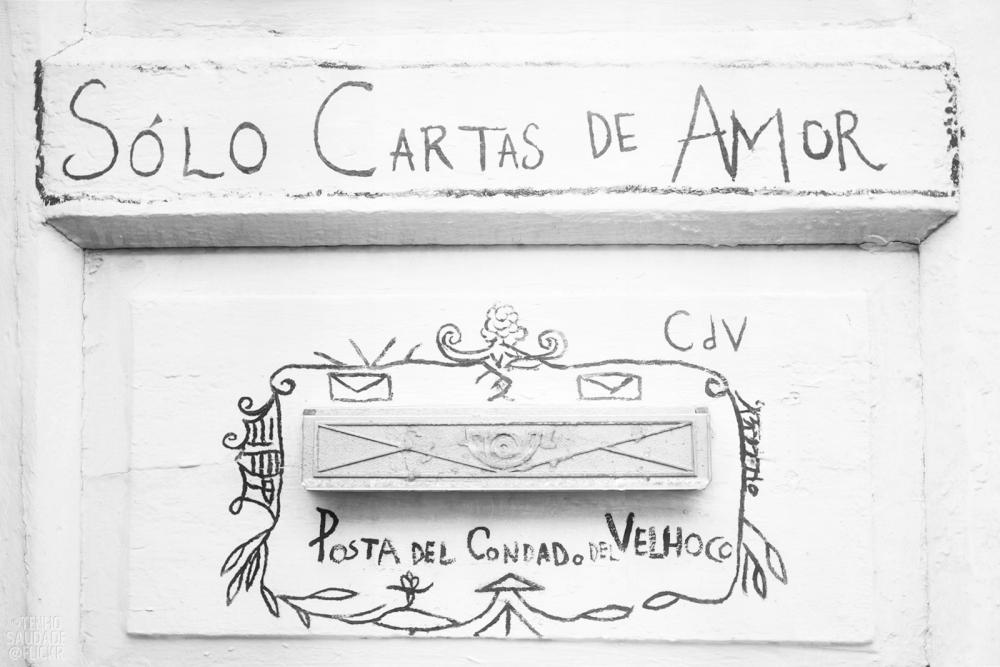 SÓLO CARTAS DE AMOR
CdV
POSTA DEL CONDADO DEL VELHOCO
©TENHO
SAUDADE
@FLICKR